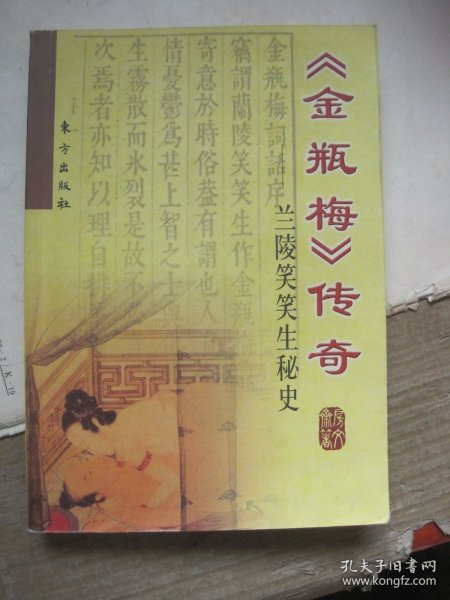 《金瓶梅》传奇
兰陵笑笑生秘史
房文斋著
金瓶梅詞話序
竊謂蘭陵笑笑生作金瓶
寄意於時俗蓋有謂也人
情憂鬱為甚上智之士
生霧散而氷裂是故不
次焉者亦知以理自排
東方出版社
孔夫子旧书网
www.kongfz.com